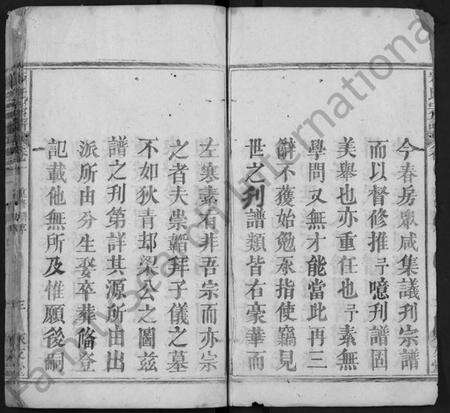 今春房眾咸集議刋宗譜
而以督修推予噫刋譜固
美舉也亦重任也予素無
學問又無才能當此再三
辭不獲始勉承指使竊見
世之刋譜類皆右豪華而
左寒素有非吾宗而亦宗
之者夫崇韜拜子儀之墓
不如狄青却梁公之圖茲
譜之刋第詳其源所由出
派所由分生娶卒葬俻登
記載他無所及惟願後嗣
FamilySearch International